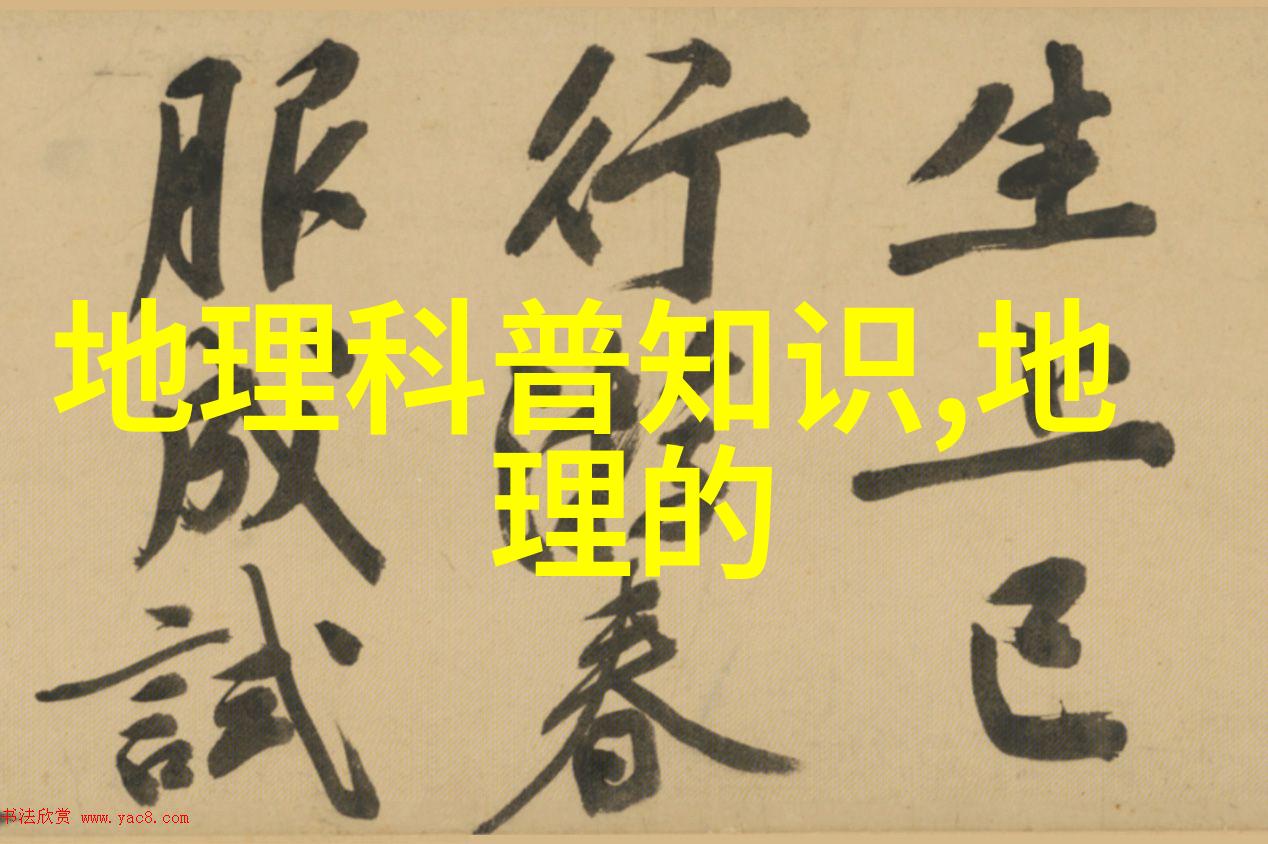 地理科普知识,地
理的
生上已
行春
服成試
书法欣赏 www.yac8.com